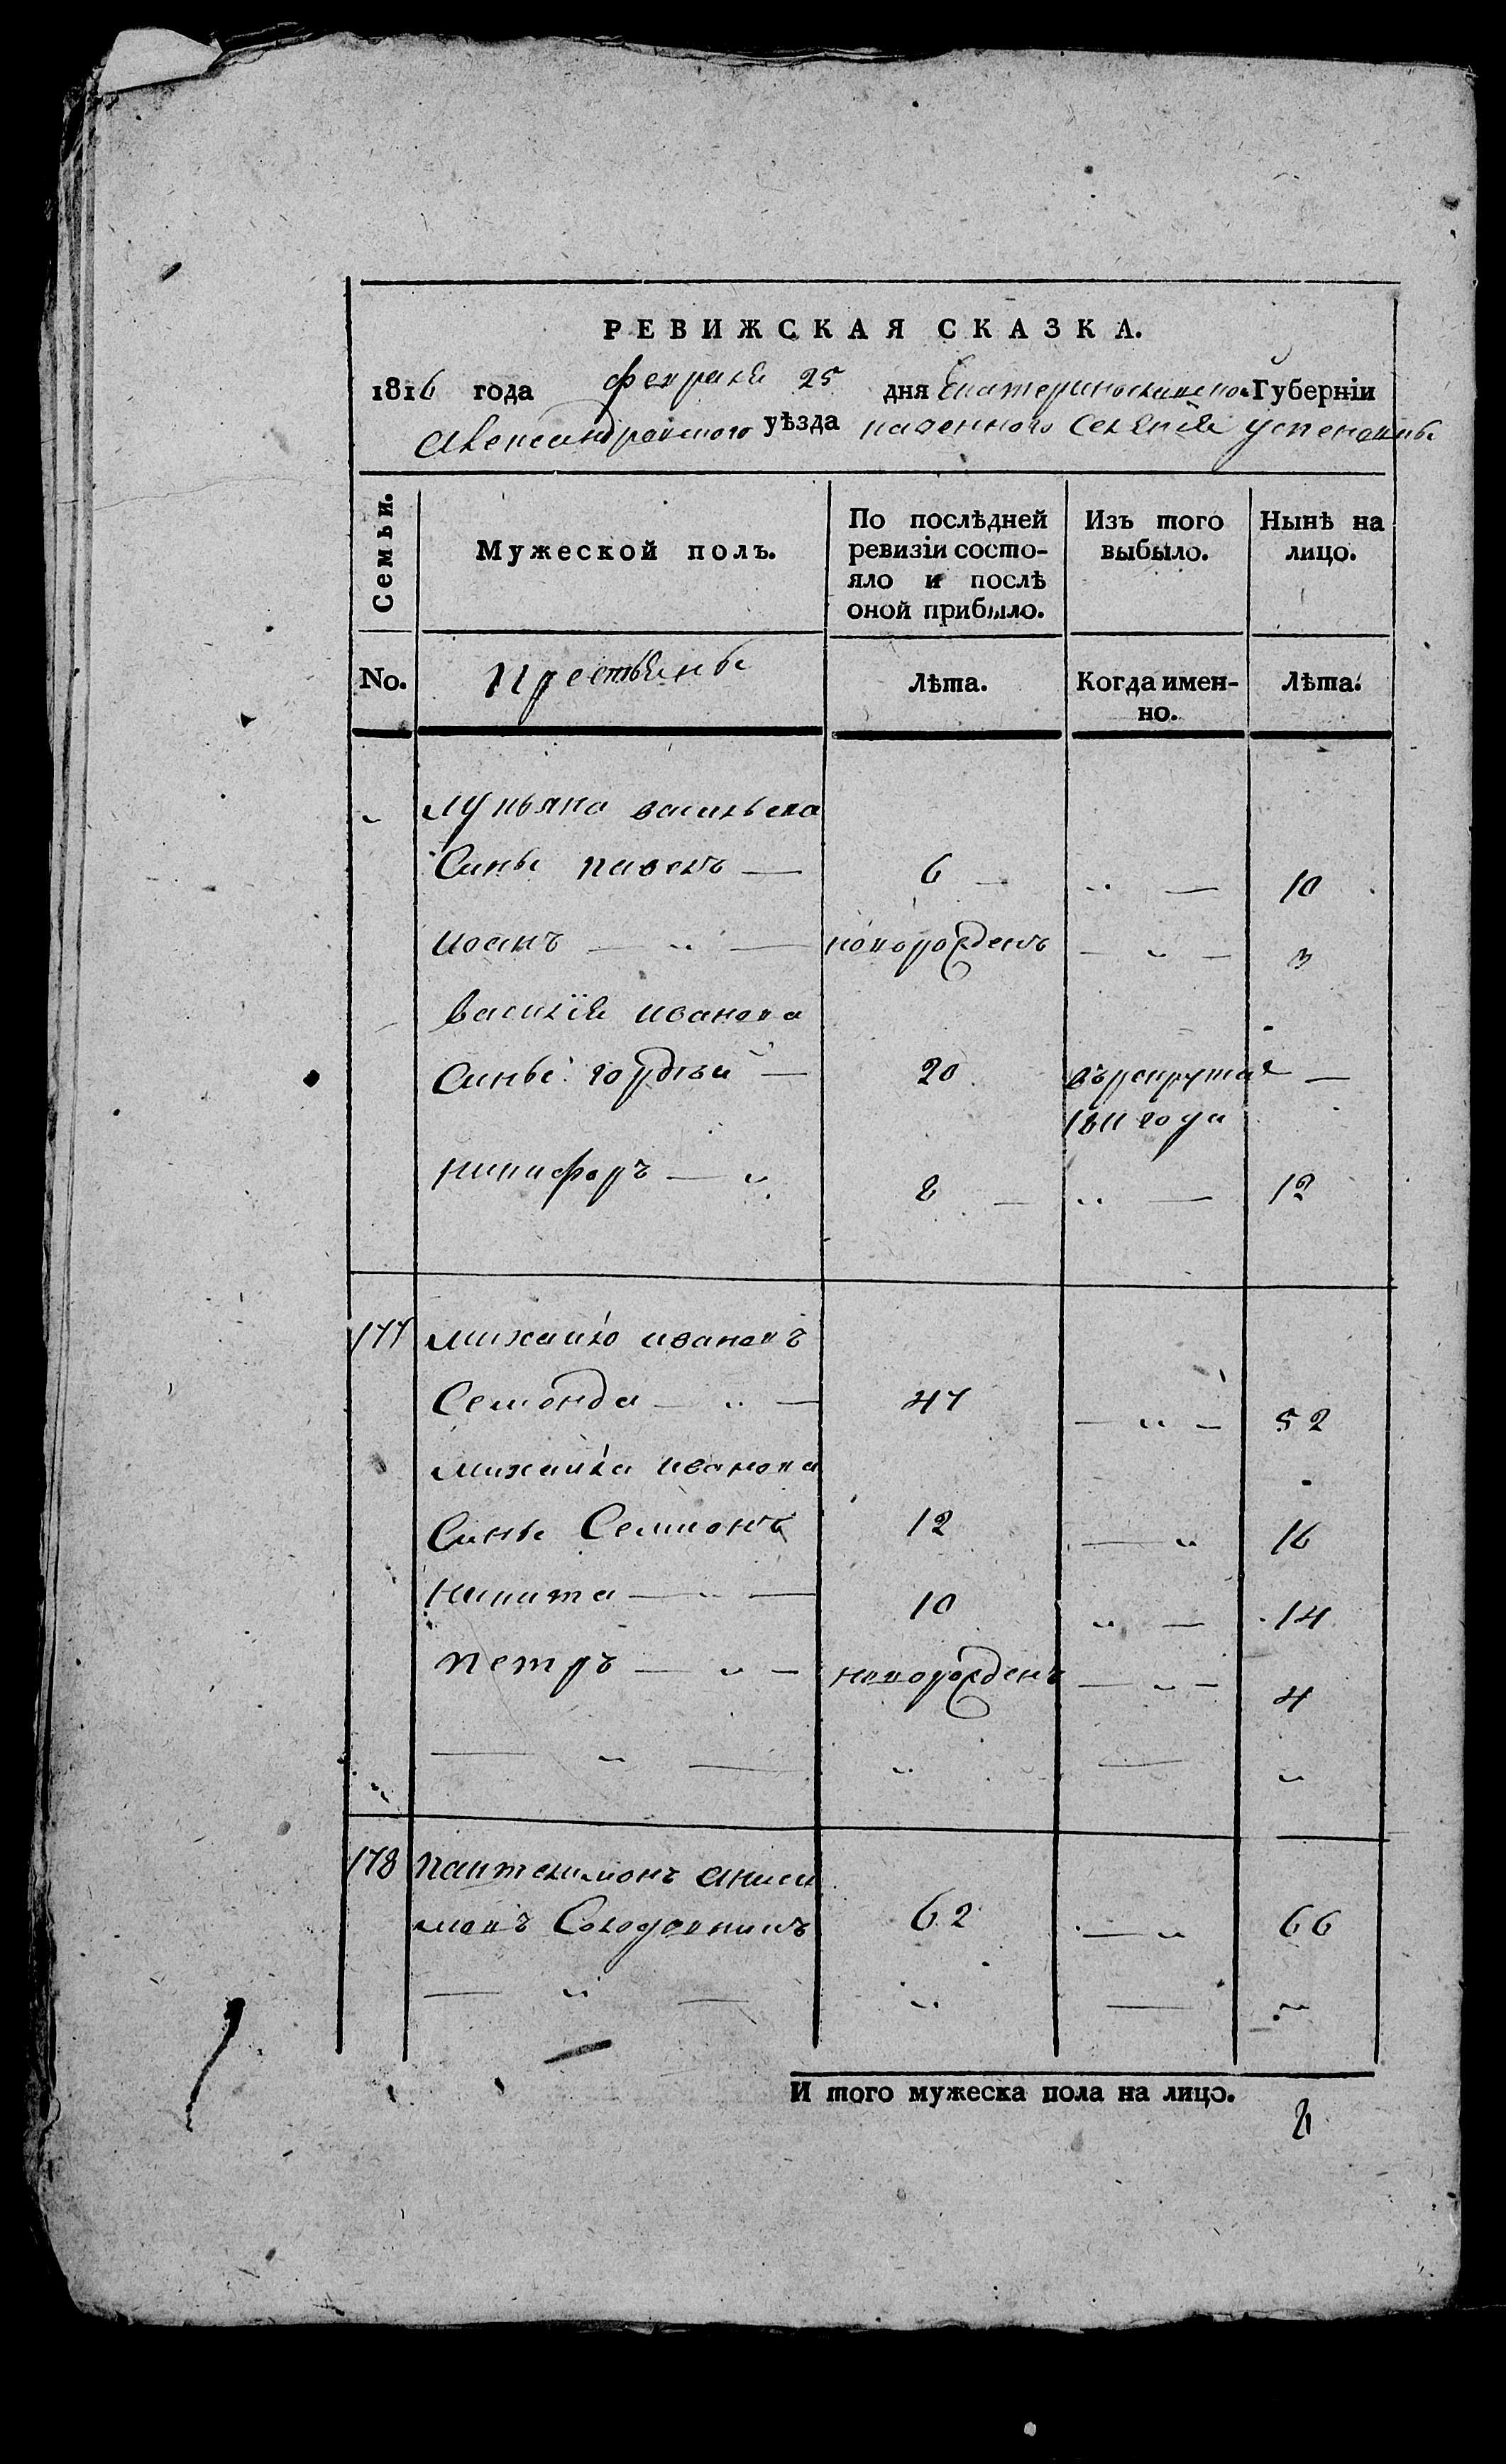 РЕВИЖСКАЯ СКАЗКА.
1816 года февраля 25 дня Екатеринославско. Губернїи
Александровского уѣзда казенного Селения успеновкы
Семьи.
Мужеской полъ.
По послѣдней ревизїи состо-
яло и послѣ
оной прибыло.
Изъ того
выбыло.
Нынѣ на
лицо.
No.
крестьяны
Лѣта.
Когда имен-
но.
Лѣта.
лукьяна васильева
Сины павелъ — 6 — 10
иоанъ — новорожденъ — 3
василия иванова
Сины гордѣй — 20 въ рекруты —
1811 года
никифоръ — 8 — 12
177 михайло ивановъ
47 — 52
михайла иванова
Сины Семионъ 12 — 16
никита — 10 — 14
петръ — новорожденъ — 4
178 пантелимонъ аниси
мовъ 62 — 66
И того мужеска пола на лицо. 8